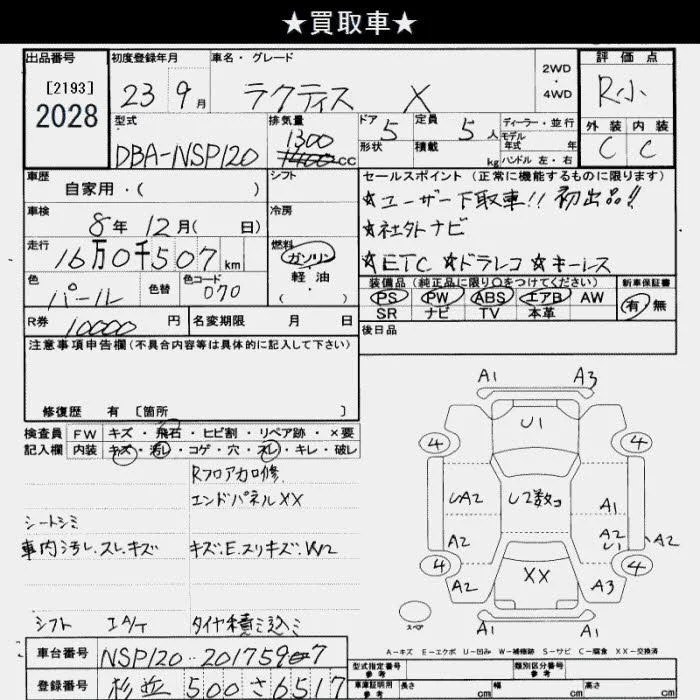 ★買取車★
出品番号 初度登録年月 車名・グレード 2WD・4WD 評価点
[2193]
2028
23 9月 ラクティス X R小
外装 内装
C C
型式 排気量 ドア 定員 ディーラー・並行
DBA-NSP120 1300 cc 5 5人 モデル年式 年
形状 積載 kg ハンドル 左・右
車歴 シフト セールスポイント (正常に機能するものに限ります)
自家用・( )
★ユーザー下取車!! 初出品!!
車検 8年12月( 日) 冷房
★社外ナビ
走行 16万0千507km 燃料 ガソリン
軽油
( ・ )
★ETC ★ドラレコ ★キーレス
色 パール 色替 色コード 070
装備品 (純正品に限り○をつけてください) 新車保証書
PS PW ABS エアB AW 有・無
SR ナビ TV 本革
R券 10000 円 名変期限 月 日
後日品
注意事項申告欄(不具合内容等は具体的に記入して下さい)
修復歴 有 [箇所 ]
検査員記入欄 FW キズ・飛石・ヒビ割・リペア跡・×要
内装 キズ・汚レ・コゲ・穴・スレ・キレ・破レ
エンドパネルXX
シートシミ
車内汚レ.スレ.キズ
シフト IA/T タイヤ積ミ込ミ
A1 A3
U1
4 4
A2 U2数コ A1
A2 A2 U1 A2
4 4
A2 XX A3
A1 A1
スペア
A-キズ E-エクボ U-凹み W-補修跡 S-サビ C-腐食 XX-交換済
車台番号 NSP120-2017590-7
型式指定番号 参考 類別区分番号 参考
登録番号 杉並 500 さ 6517
車庫証明用 参考 長さ cm 幅 cm 高さ cm